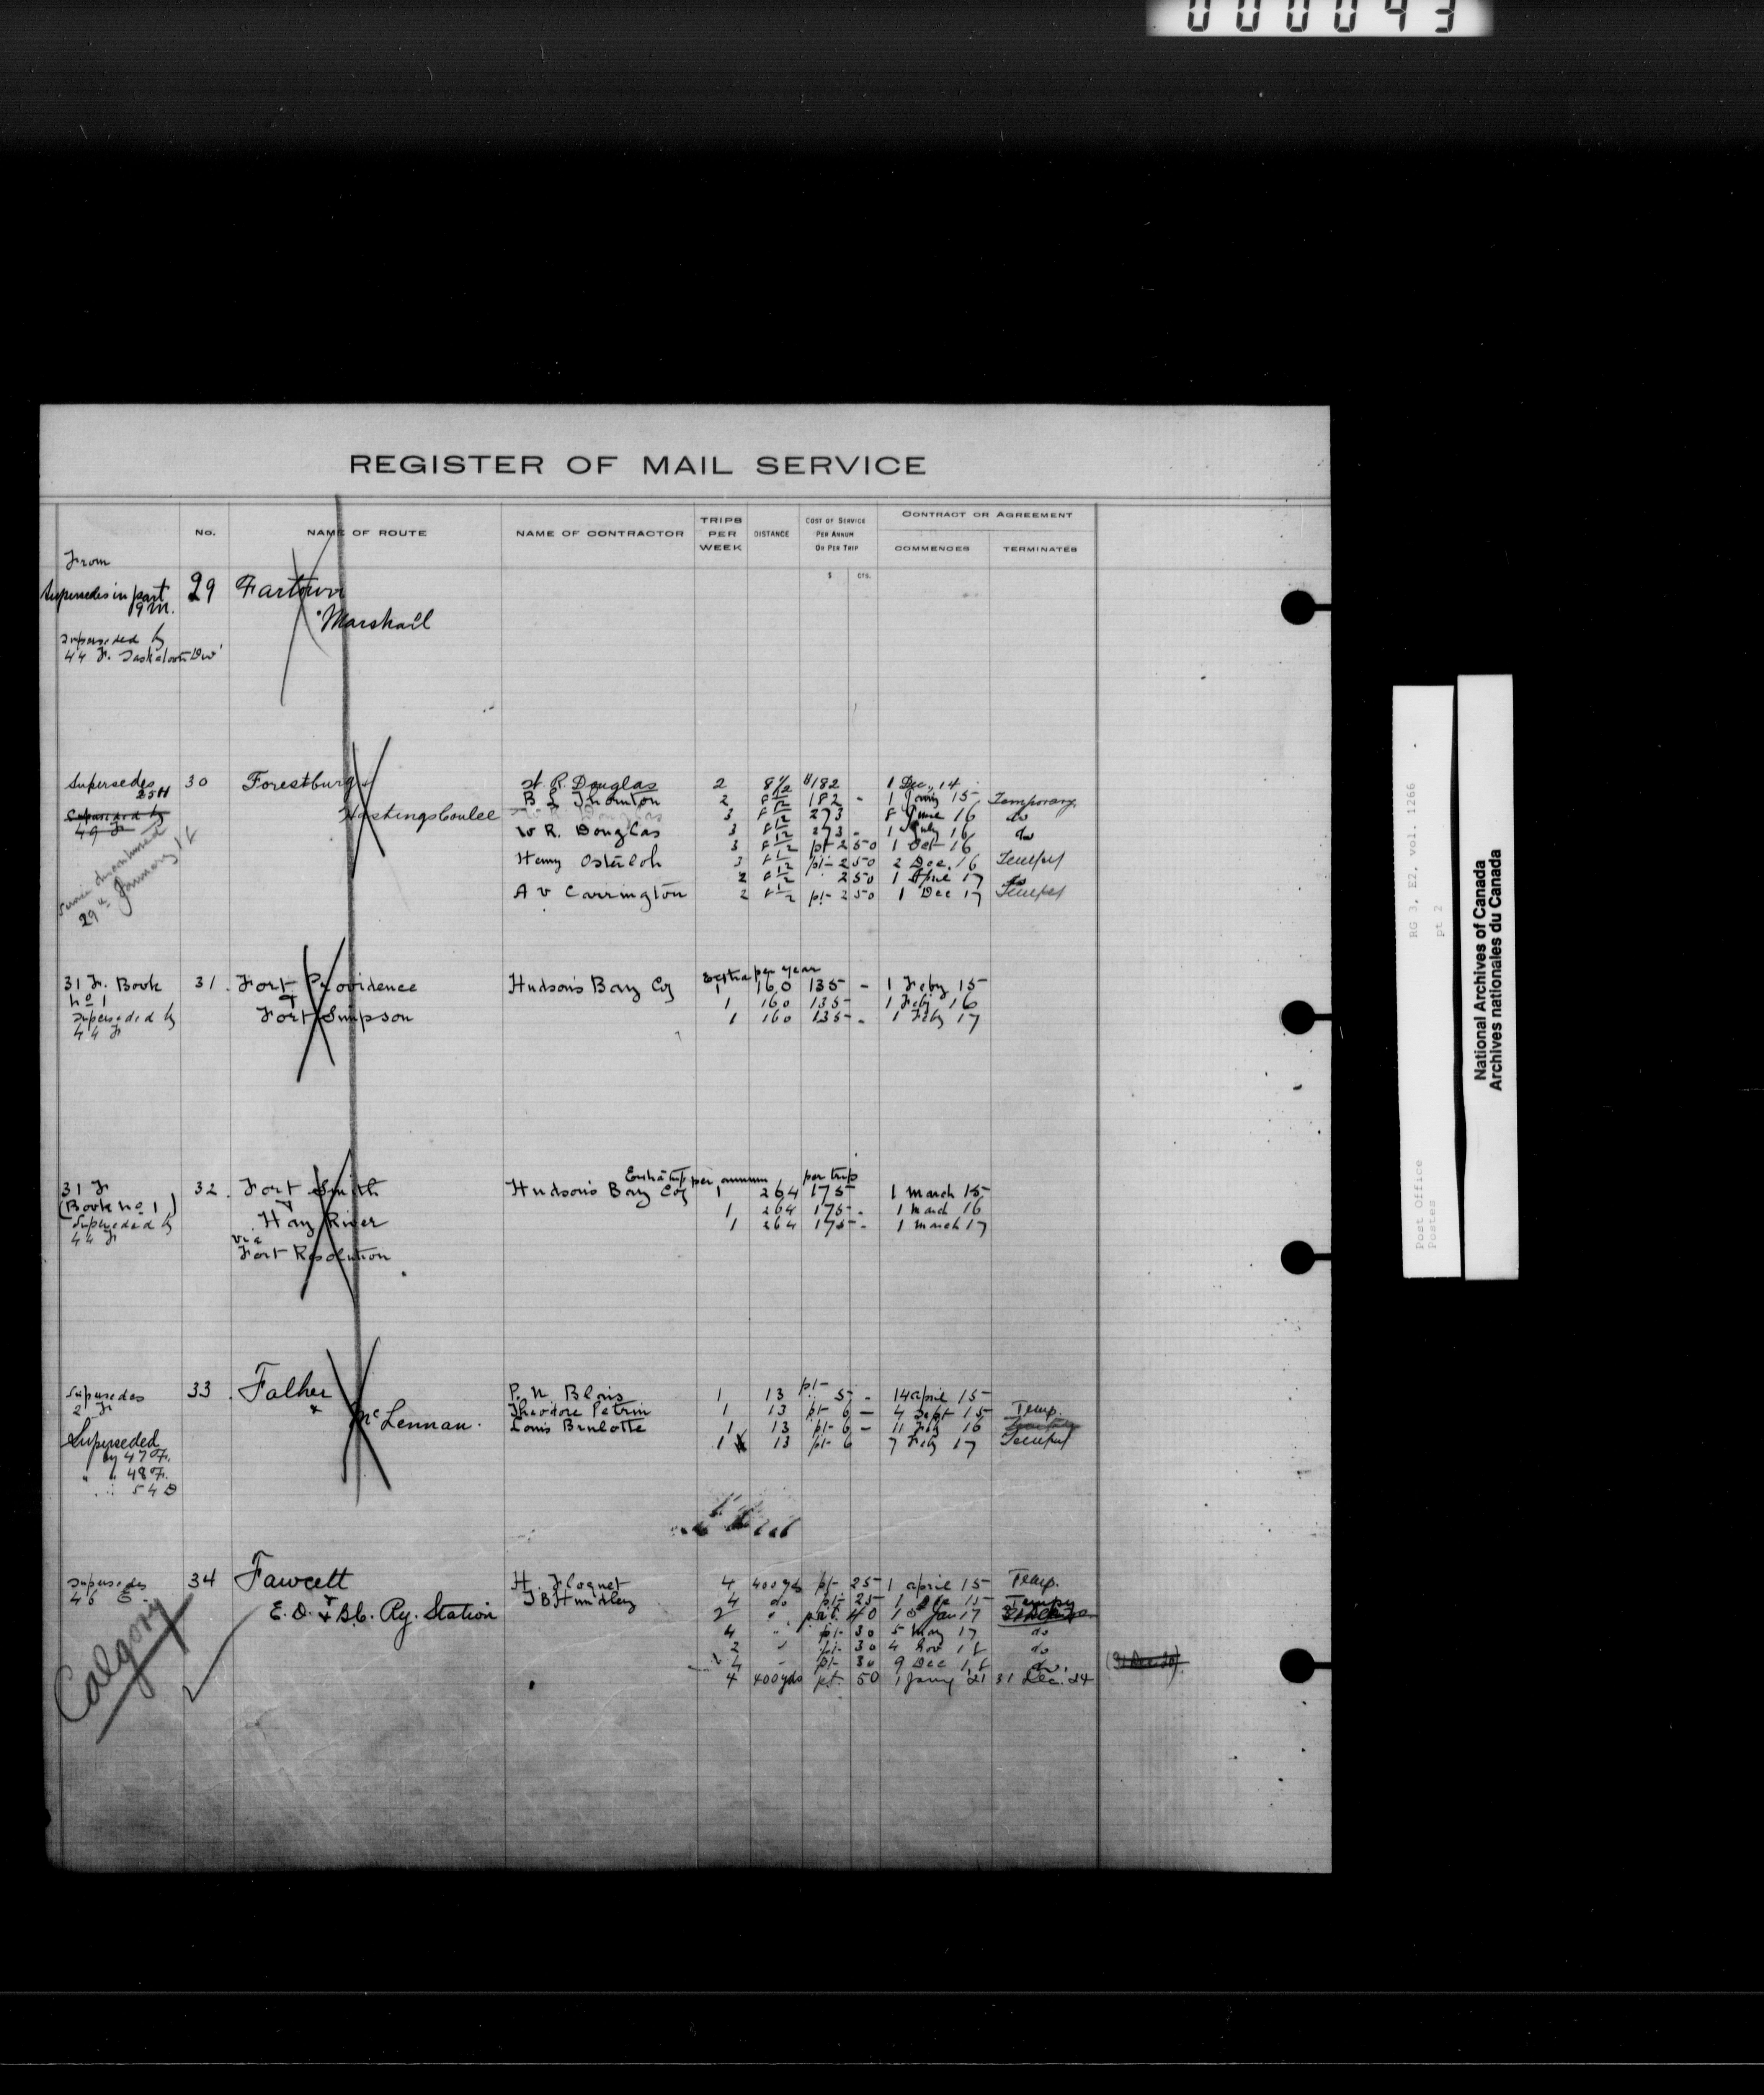 000093
REGISTER OF MAIL SERVICE
No.
NAME OF ROUTE
NAME OF CONTRACTOR
TRIPS PER WEEK
DISTANCE
COST OF SERVICE PER ANNUM OR PER TRIP
$ CTS.
CONTRACT OR AGREEMENT
COMMENCES
TERMINATES
From
Supersedes in part 9 M.
Superseded by
44 F. Saskatoon Div
29 Fartown
Marshall
Supersedes
25 H
Superseded by
49 F
29th January 18
30 Forestburg &
Hastings Coulee
R. Douglas 2 8 1/2 $182 1 Dec. 14
Thornton 2 8 1/2 182 - 1 Jany 15 Temporary
3 8 1/2 273 8 June 16 do
W R. Douglas 3 8 1/2 273 - 1 July 16 do
3 8 1/2 pt- 2 50 1 Oct 16
Henry Osterloh 3 8 1/2 pt- 2 50 2 Dec. 16
2 8 1/2 2 50 1 April 17 do
A V Carrington 2 8 1/2 pt- 2 50 1 Dec 17
31 F. Book
No 1
Superseded by
44 F
31. Fort Providence
&
Fort Simpson
Hudson's Bay Coy
per year
1 160 135 - 1 Feby 15
1 160 135 - 1 Feby 16
1 160 135 - 1 Feby 17
31 F
(Book No 1)
Superseded by
44 F
32. Fort Smith
&
Hay River
via
Fort Resolution
Hudson's Bay Coy
per annum per trip
1 264 175 1 March 15
1 264 175 - 1 March 16
1 264 175 - 1 March 17
Supersedes
2 F
Superseded
by 47 F.
" " 48 F.
" 54 D
33. Falher
&
McLennan.
P. N. Blais 1 13 pt- 5 - 14 April 15
Theodore Petrin 1 13 pt- 6 - 4 Sept 15 Temp.
Louis Brulotte 1 13 pt- 6 - 11 Feby 16
1 13 pt- 6 7 Feby 17
Supersedes
46 E.
Calgary
34 Fawcett
&
E. D. & B.C. Ry. Station
H. Floquet 4 400 yds pt- 25 1 April 15 Temp.
4 do pt- 25 1 15 Tempy
2 " pt. 40 10 Jan 17
4 " pt- 30 5 May 17 do
2 " pt- 30 4 Nov 18 do
4 " pt- 30 9 Dec 18 do.
4 400 yds pt. 50 1 Jany 21 31 Dec. 24
Post Office
Postes
RG 3, E2, vol. 1266
pt 2
National Archives of Canada
Archives nationales du Canada